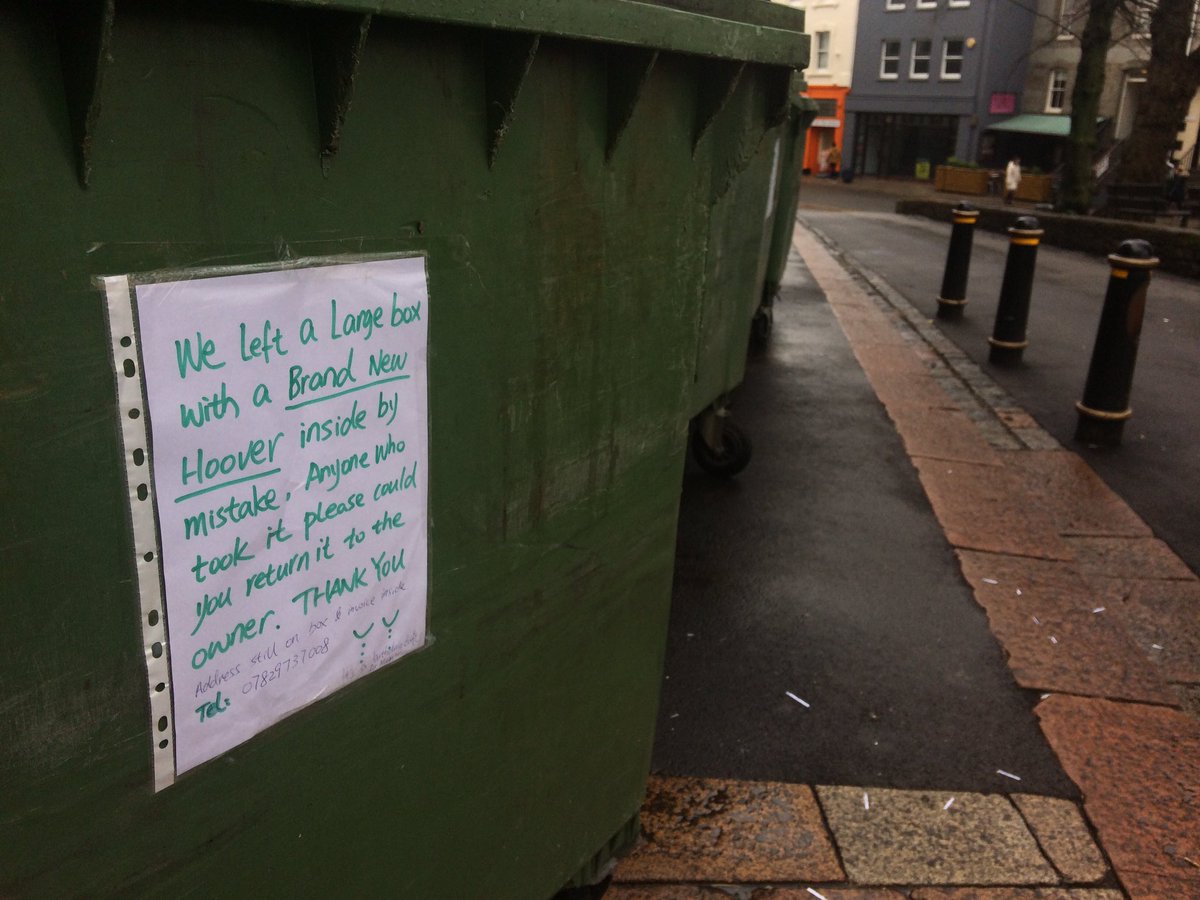 We left a Large box
with a Brand New
Hoover inside by
mistake. Anyone who
took it please could
you return it to the
owner. THANK YOU
Address still on box & invoice inside
Tel: 07829737008